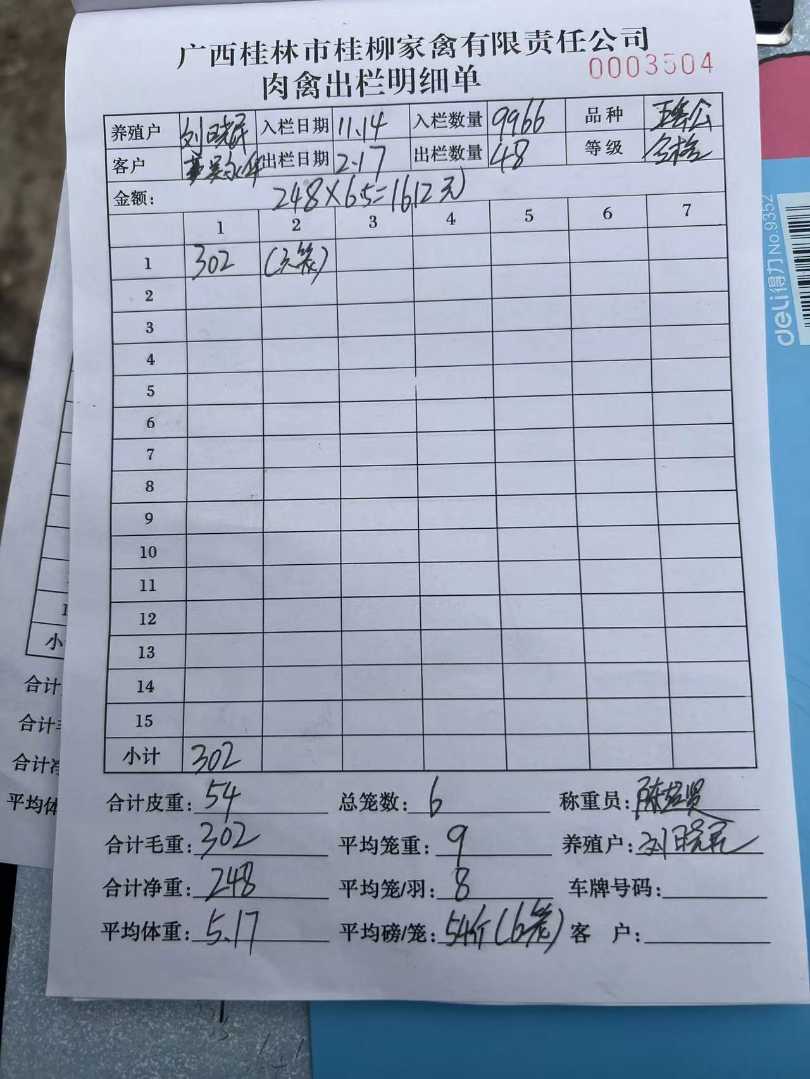 广西桂林市桂柳家禽有限责任公司
肉禽出栏明细单 0003504
养殖户 刘晓民 入栏日期 11.14 入栏数量 9966 品种
客户 出栏日期 2.17 出栏数量 48 等级 合格
金额: 248×6.5=1612元
1 2 3 4 5 6 7
1 302 (6笼)
2
3
4
5
6
7
8
9
10
11
12
13
14
15
小计 302
合计皮重: 54 总笼数: 6 称重员:
合计毛重: 302 平均笼重: 9 养殖户: 刘晓民
合计净重: 248 平均笼/羽: 8 车牌号码:
平均体重: 5.17 平均磅/笼: 54斤(6笼) 客 户:
小
合计
合计毛
合计净
平均体
deli得力 No.9352